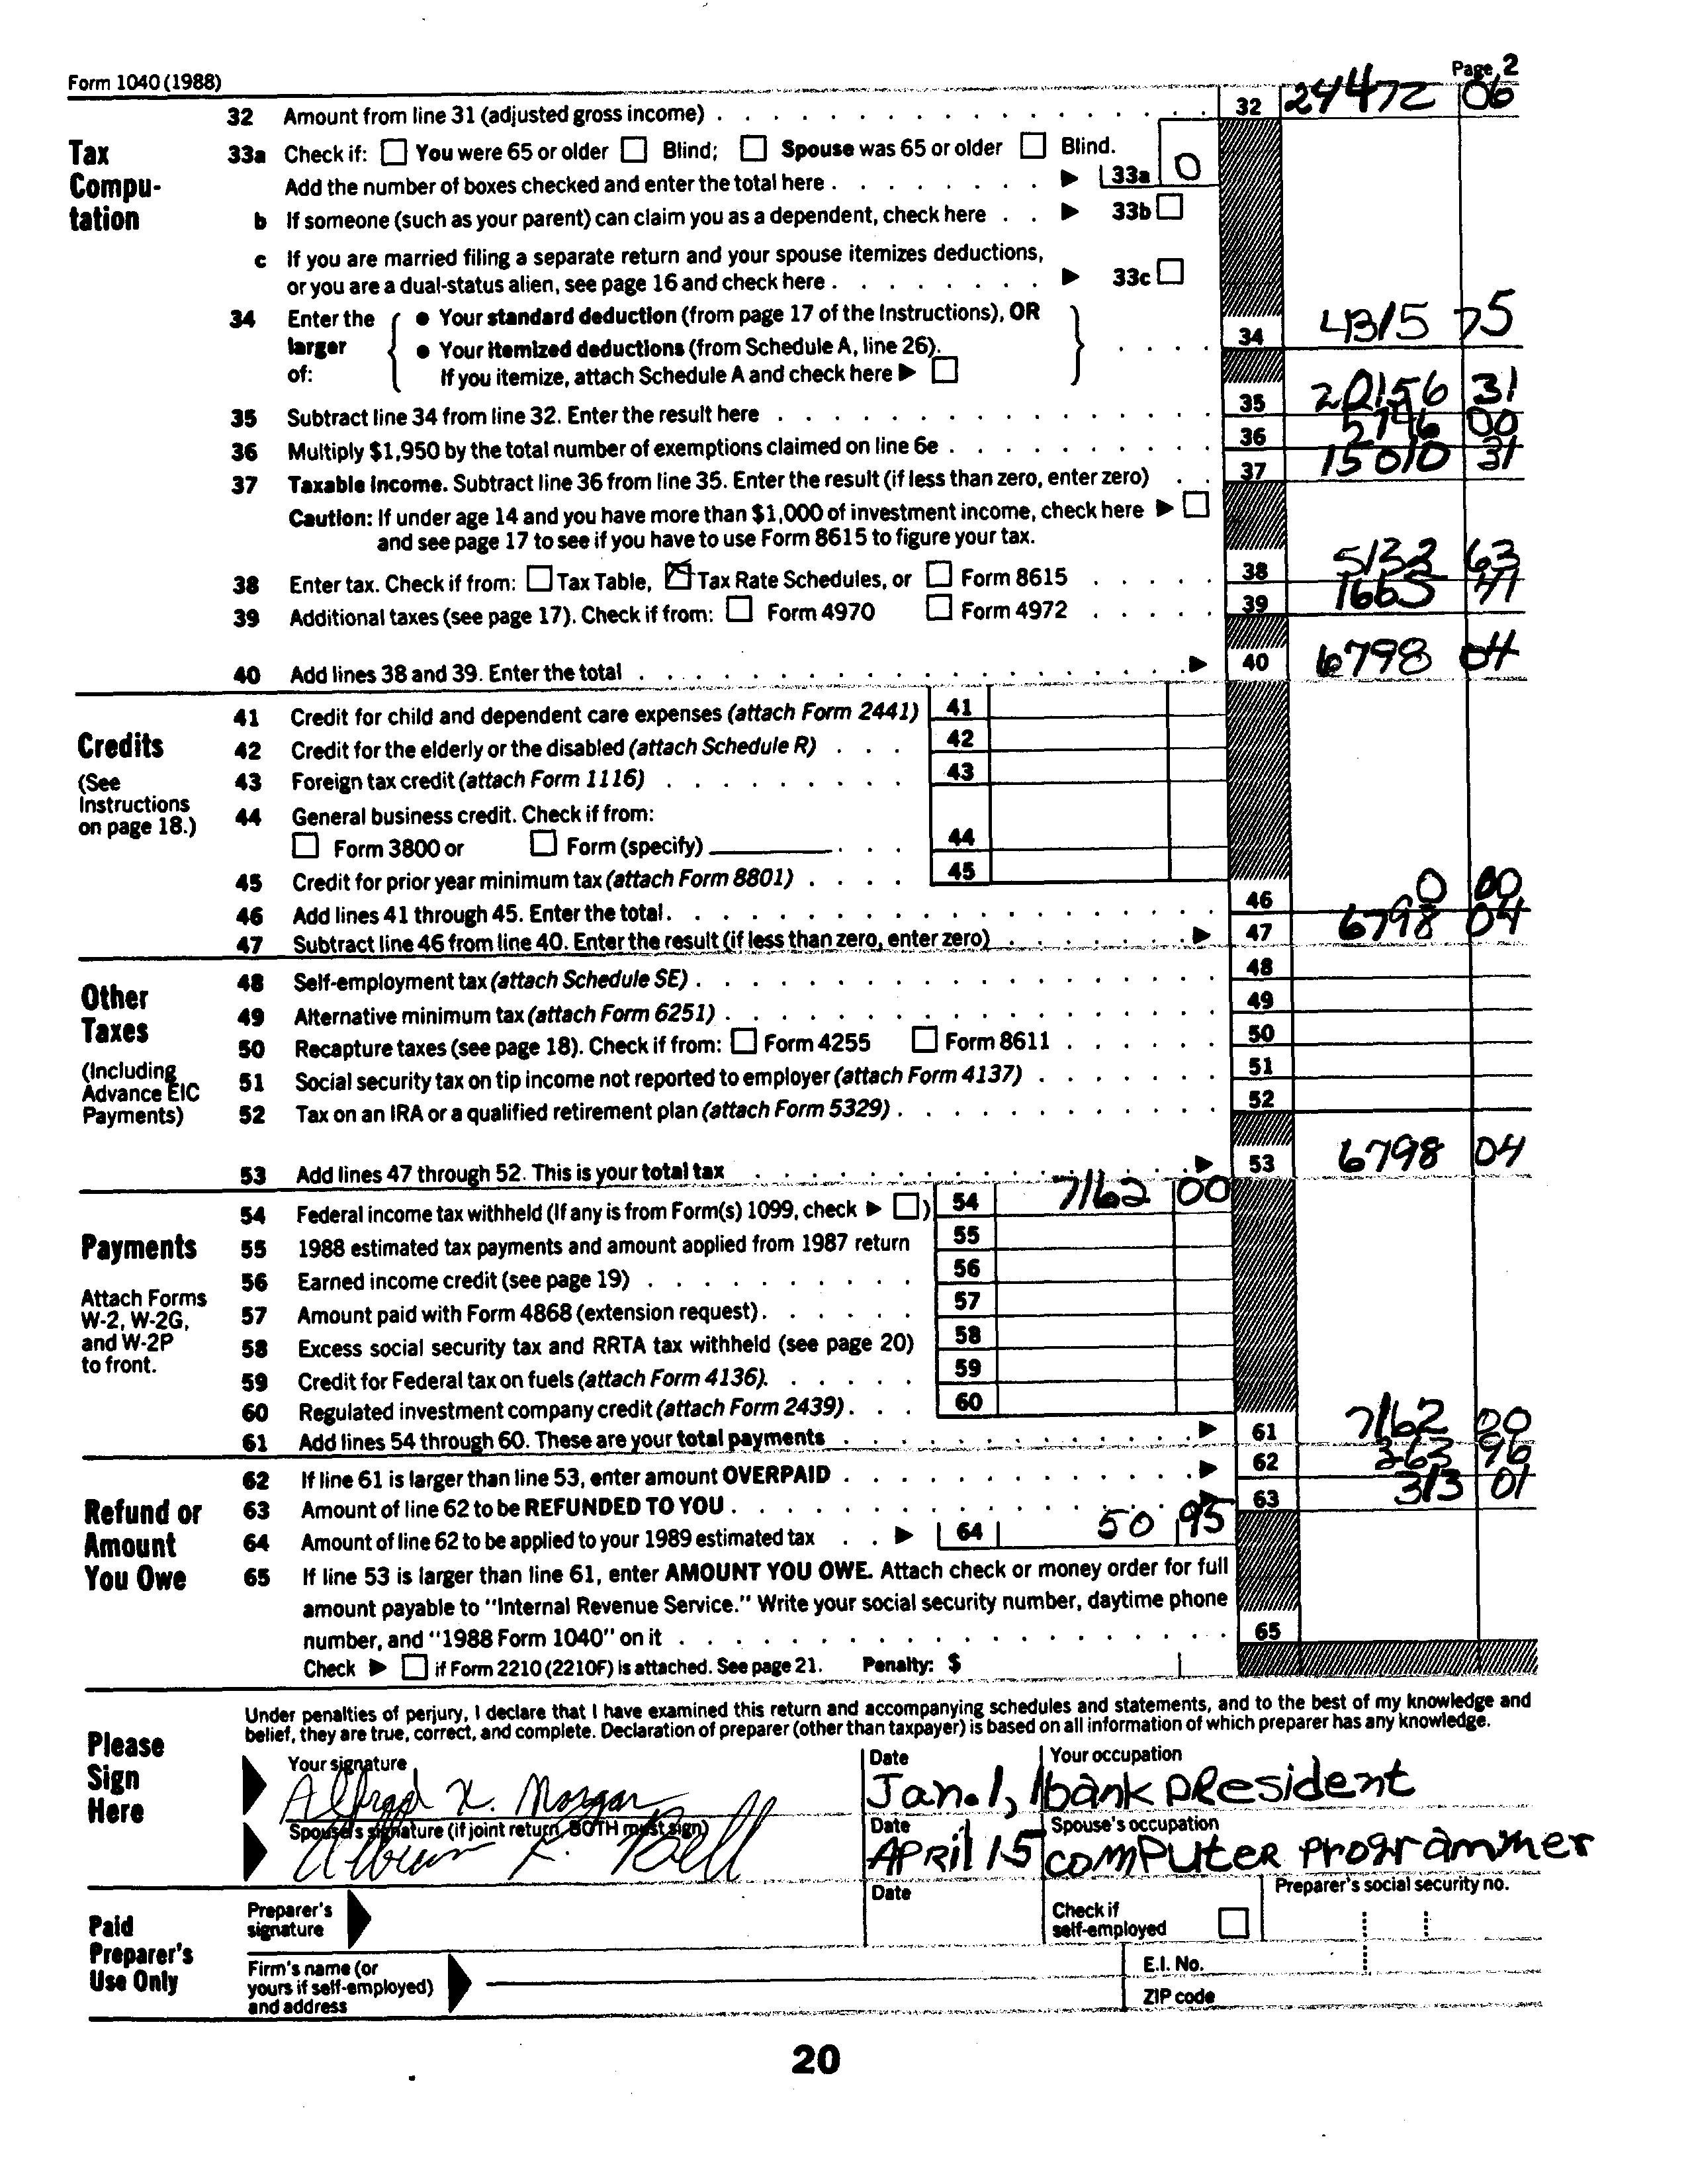 Form 1040 (1988) Page 2
32 Amount from line 31 (adjusted gross income) 32 24472 06
Tax Computation
33a Check if: You were 65 or older Blind; Spouse was 65 or older Blind.
Add the number of boxes checked and enter the total here 33a 0
b If someone (such as your parent) can claim you as a dependent, check here 33b
c If you are married filing a separate return and your spouse itemizes deductions,
or you are a dual-status alien, see page 16 and check here 33c
34 Enter the larger of:
• Your standard deduction (from page 17 of the Instructions), OR
• Your itemized deductions (from Schedule A, line 26).
If you itemize, attach Schedule A and check here
34 4315 75
35 Subtract line 34 from line 32. Enter the result here 35 20156 31
36 Multiply $1,950 by the total number of exemptions claimed on line 6e 36 00
37 Taxable income. Subtract line 36 from line 35. Enter the result (if less than zero, enter zero) 37 15010 31
Caution: If under age 14 and you have more than $1,000 of investment income, check here
and see page 17 to see if you have to use Form 8615 to figure your tax.
38 Enter tax. Check if from: Tax Table, Tax Rate Schedules, or Form 8615 38 5132 63
39 Additional taxes (see page 17). Check if from: Form 4970 Form 4972 39 1665 41
40 Add lines 38 and 39. Enter the total 40 6798 04
Credits
(See Instructions on page 18.)
41 Credit for child and dependent care expenses (attach Form 2441) 41
42 Credit for the elderly or the disabled (attach Schedule R) 42
43 Foreign tax credit (attach Form 1116) 43
44 General business credit. Check if from:
Form 3800 or Form (specify) 44
45 Credit for prior year minimum tax (attach Form 8801) 45
46 Add lines 41 through 45. Enter the total 46 0 00
47 Subtract line 46 from line 40. Enter the result (if less than zero, enter zero) 47 6798 04
Other Taxes
(Including Advance EIC Payments)
48 Self-employment tax (attach Schedule SE) 48
49 Alternative minimum tax (attach Form 6251) 49
50 Recapture taxes (see page 18). Check if from: Form 4255 Form 8611 50
51 Social security tax on tip income not reported to employer (attach Form 4137) 51
52 Tax on an IRA or a qualified retirement plan (attach Form 5329) 52
53 Add lines 47 through 52. This is your total tax 53 6798 04
Payments
Attach Forms W-2, W-2G, and W-2P to front.
54 Federal income tax withheld (If any is from Form(s) 1099, check ) 54 7162 00
55 1988 estimated tax payments and amount applied from 1987 return 55
56 Earned income credit (see page 19) 56
57 Amount paid with Form 4868 (extension request) 57
58 Excess social security tax and RRTA tax withheld (see page 20) 58
59 Credit for Federal tax on fuels (attach Form 4136). 59
60 Regulated investment company credit (attach Form 2439) 60
61 Add lines 54 through 60. These are your total payments 61 7162 00
Refund or Amount You Owe
62 If line 61 is larger than line 53, enter amount OVERPAID 62 363 96
63 Amount of line 62 to be REFUNDED TO YOU 63 313 01
64 Amount of line 62 to be applied to your 1989 estimated tax 64 50 95
65 If line 53 is larger than line 61, enter AMOUNT YOU OWE. Attach check or money order for full
amount payable to "Internal Revenue Service." Write your social security number, daytime phone
number, and "1988 Form 1040" on it 65
Check if Form 2210 (2210F) is attached. See page 21. Penalty: $
Please Sign Here
Under penalties of perjury, I declare that I have examined this return and accompanying schedules and statements, and to the best of my knowledge and
belief, they are true, correct, and complete. Declaration of preparer (other than taxpayer) is based on all information of which preparer has any knowledge.
Your signature Date Your occupation
Alfred X. Morgan Jan. 1, bank president
Spouse's signature (if joint return, BOTH must sign) Date Spouse's occupation
F. Bell APRil 15 computer programmer
Paid Preparer's Use Only
Preparer's signature Date Check if self-employed Preparer's social security no.
Firm's name (or yours if self-employed) and address E.I. No.
ZIP code
20